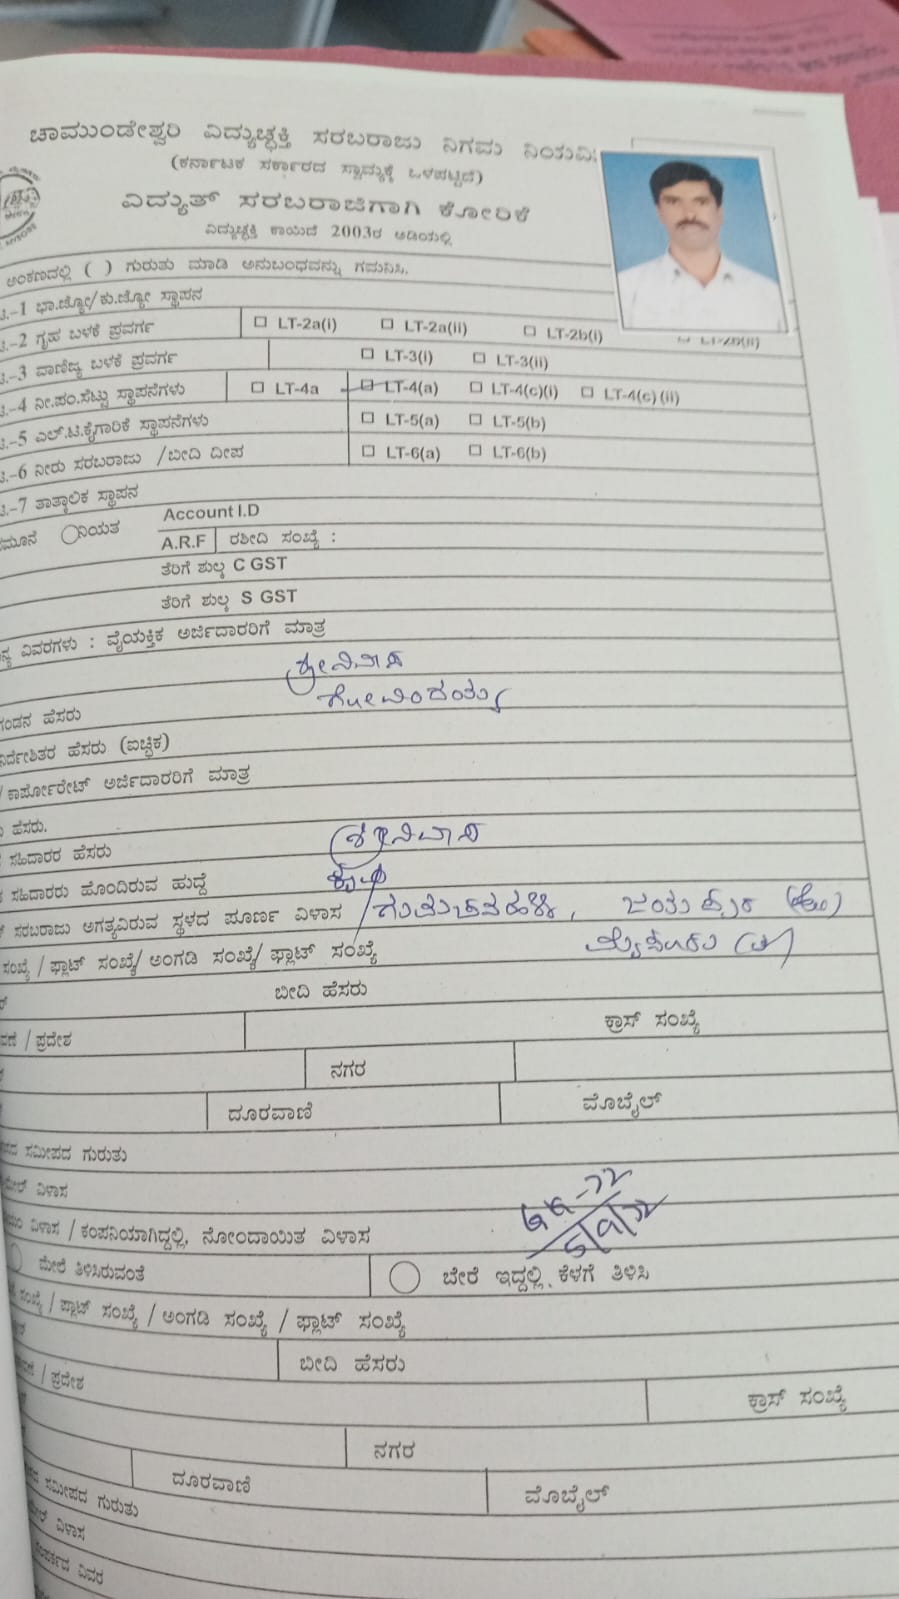 ಚಾಮುಂಡೇಶ್ವರಿ ವಿದ್ಯುಚ್ಛಕ್ತಿ ಸರಬರಾಜು ನಿಗಮ ನಿಯಮಿ
(ಕರ್ನಾಟಕ ಸರ್ಕಾರದ ಸ್ವಾಮ್ಯಕ್ಕೆ ಒಳಪಟ್ಟಿದೆ)
ವಿದ್ಯುತ್ ಸರಬರಾಜಿಗಾಗಿ ಕೋರಿಕೆ
ವಿದ್ಯುಚ್ಛಕ್ತಿ ಕಾಯಿದೆ 2003ರ ಅಡಿಯಲ್ಲಿ
ಅಂಕಣದಲ್ಲಿ ( ) ಗುರುತು ಮಾಡಿ ಅನುಬಂಧವನ್ನು ಗಮನಿಸಿ.
-1 ಭಾ.ಜ್ಯೋ/ಕು.ಜ್ಯೋ ಸ್ಥಾಪನ
-2 ಗೃಹ ಬಳಕೆ ಪ್ರವರ್ಗ LT-2a(i) LT-2a(ii) LT-2b(i) LT-2b(ii)
-3 ವಾಣಿಜ್ಯ ಬಳಕೆ ಪ್ರವರ್ಗ LT-3(i) LT-3(ii)
-4 ನೀ.ಪಂ.ಸೆಟ್ಟು ಸ್ಥಾಪನೆಗಳು LT-4a LT-4(a) LT-4(c)(i) LT-4(c)(ii)
-5 ಎಲ್.ಟಿ.ಕೈಗಾರಿಕೆ ಸ್ಥಾಪನೆಗಳು LT-5(a) LT-5(b)
-6 ನೀರು ಸರಬರಾಜು /ಬೀದಿ ದೀಪ LT-6(a) LT-6(b)
-7 ತಾತ್ಕಾಲಿಕ ಸ್ಥಾಪನ
ನಿಯತ Account I.D
A.R.F ರಶೀದಿ ಸಂಖ್ಯೆ :
ತೆರಿಗೆ ಶುಲ್ಕ C GST
ತೆರಿಗೆ ಶುಲ್ಕ S GST
ವಿವರಗಳು : ವೈಯಕ್ತಿಕ ಅರ್ಜಿದಾರರಿಗೆ ಮಾತ್ರ
ಶ್ರೀನಿವಾಸ
ಗಂಡನ ಹೆಸರು
ನಿರ್ದೇಶಿತರ ಹೆಸರು (ಐಚ್ಛಿಕ)
/ ಕಾರ್ಪೋರೇಟ್ ಅರ್ಜಿದಾರರಿಗೆ ಮಾತ್ರ
ಹೆಸರು.
ಸಹಿದಾರರ ಹೆಸರು ಶ್ರೀನಿವಾಸ
ಸಹಿದಾರರು ಹೊಂದಿರುವ ಹುದ್ದೆ ಕೃಷಿ
ಸರಬರಾಜು ಅಗತ್ಯವಿರುವ ಸ್ಥಳದ ಪೂರ್ಣ ವಿಳಾಸ
ಸಂಖ್ಯೆ / ಪ್ಲಾಟ್ ಸಂಖ್ಯೆ/ ಅಂಗಡಿ ಸಂಖ್ಯೆ/ ಫ್ಲಾಟ್ ಸಂಖ್ಯೆ ಮೈಸೂರು (ತಾ)
ಬೀದಿ ಹೆಸರು
/ ಪ್ರದೇಶ ಕ್ರಾಸ್ ಸಂಖ್ಯೆ
ನಗರ
ದೂರವಾಣಿ ಮೊಬೈಲ್
ಸಮೀಪದ ಗುರುತು
ವಿಳಾಸ
5/9/22
ವಿಳಾಸ / ಕಂಪನಿಯಾಗಿದ್ದಲ್ಲಿ, ನೋಂದಾಯಿತ ವಿಳಾಸ
ಮೇಲೆ ತಿಳಿಸಿರುವಂತೆ ಬೇರೆ ಇದ್ದಲ್ಲಿ ಕೆಳಗೆ ತಿಳಿಸಿ
ಸಂಖ್ಯೆ / ಪ್ಲಾಟ್ ಸಂಖ್ಯೆ / ಅಂಗಡಿ ಸಂಖ್ಯೆ / ಫ್ಲಾಟ್ ಸಂಖ್ಯೆ
ಬೀದಿ ಹೆಸರು
/ ಪ್ರದೇಶ ಕ್ರಾಸ್ ಸಂಖ್ಯೆ
ನಗರ
ದೂರವಾಣಿ ಮೊಬೈಲ್
ಸಮೀಪದ ಗುರುತು
ವಿಳಾಸ
ವಿವರ